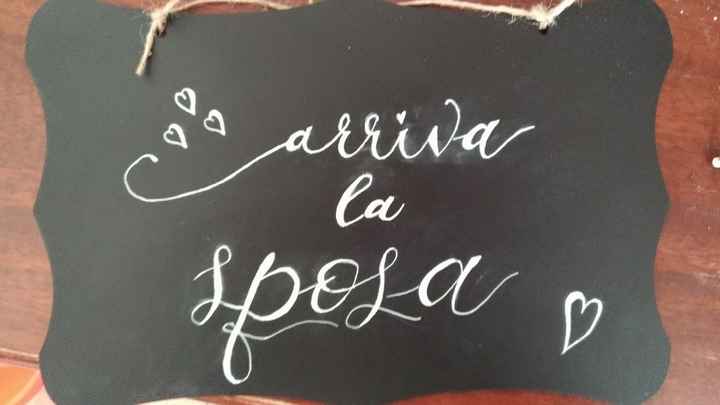 arriva
la
sposa